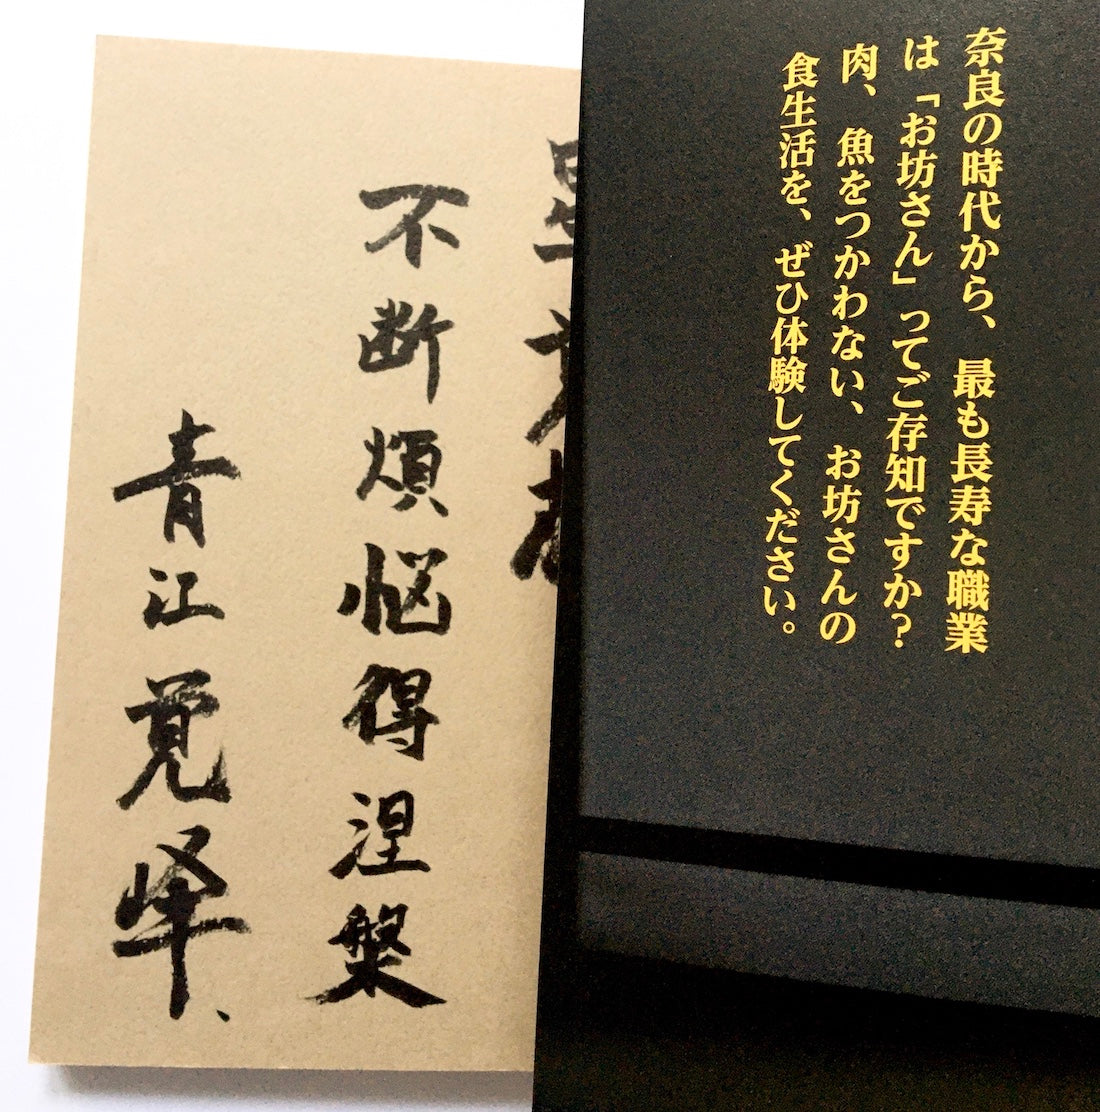 奈良の時代から、最も長寿な職業
は「お坊さん」ってご存知ですか?
肉、魚をつかわない、お坊さんの
食生活を、ぜひ体験してください。
不断煩悩得涅槃
青江覚峰